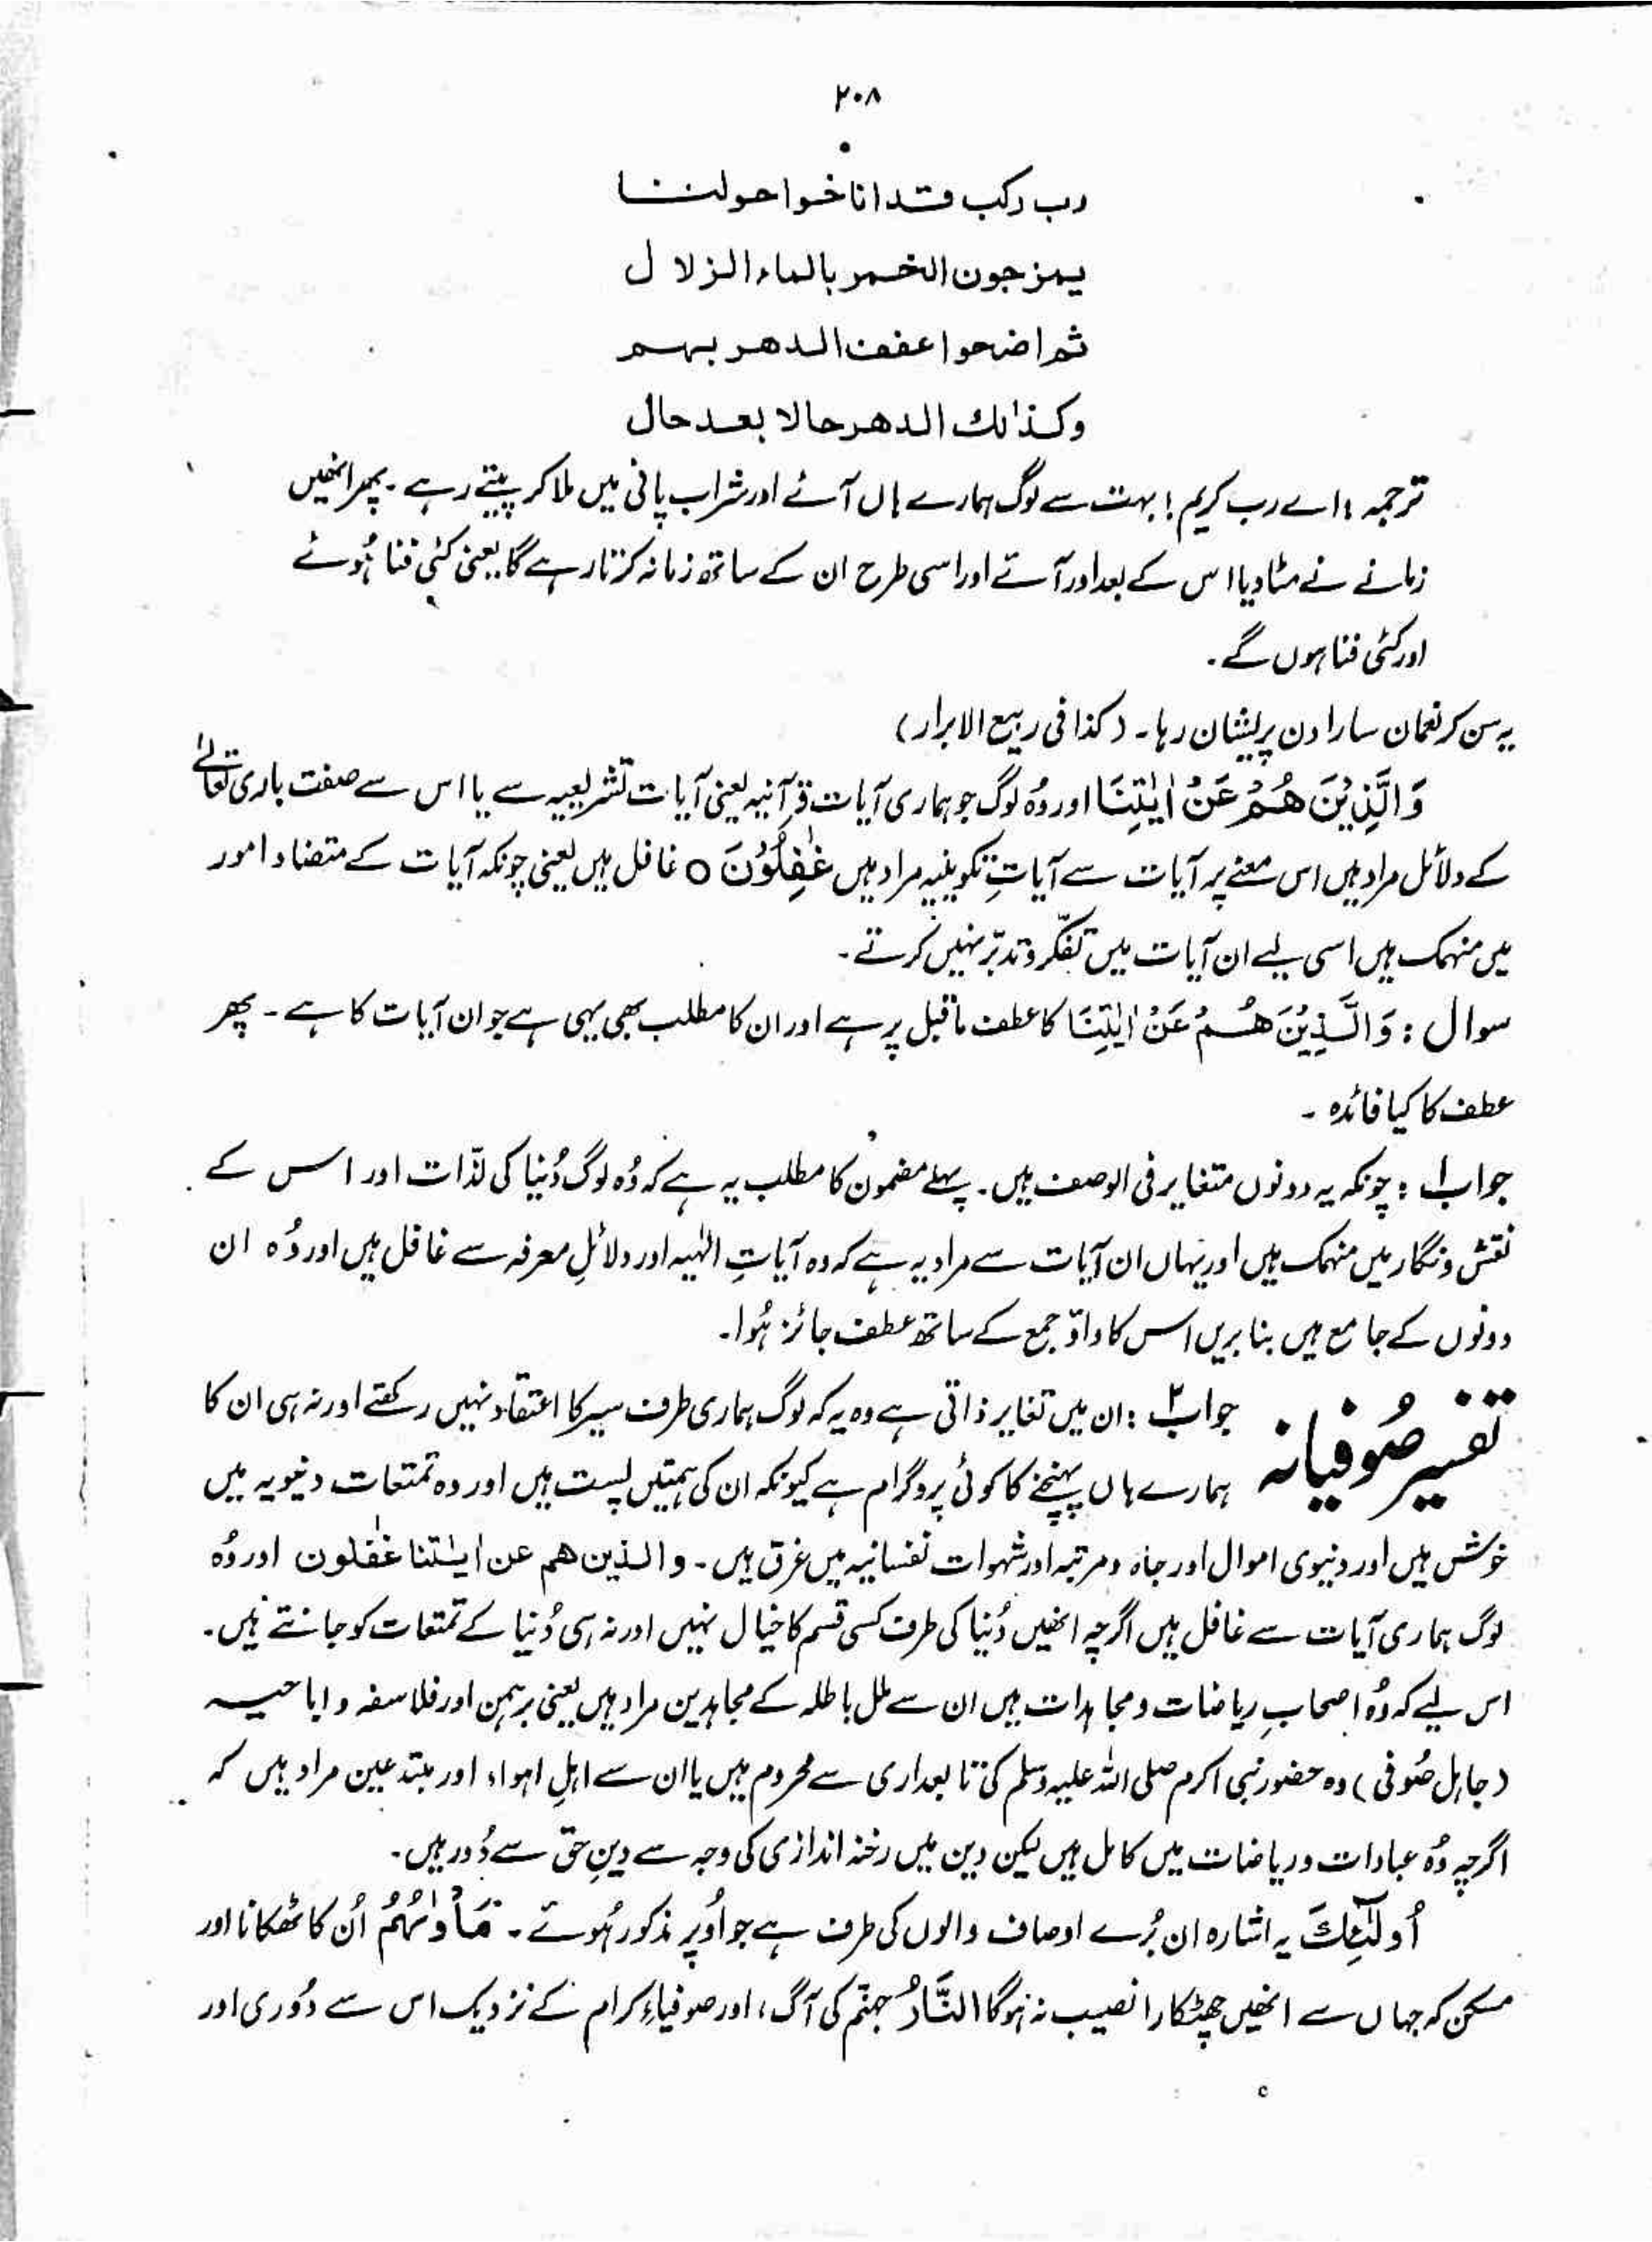 ۲۰۸
رب رکب قد اناخوا حولنا
یمزجون الخمر بالماء الزلال
ثم اضحوا عفف الدھر بہم
وکذالك الدھر حالا بعد حال
ترجمہ : اے رب کریم ! بہت سے لوگ ہمارے ہاں آئے اور شراب پانی میں ملا کر پیتے رہے ۔ پھر انھیں
زمانے نے مٹا دیا اس کے بعد اور آتے اور اسی طرح ان کے ساتھ زمانہ کرتا رہے گا یعنی کئی فنا ہُوئے
اور کئی فنا ہوں گے ۔
یہ سن کر نعمان سارا دن پریشان رہا ۔ (کذا فی ربیع الابرار)
وَالَّذِیْنَ ھُمْ عَنْ اٰیٰتِنَا اور وُہ لوگ جو ہماری آیات قرآنیہ یعنی آیات تشریعیہ سے یا اس سے صفت باری تعالےٰ
کے دلائل مراد ہیں اس معنے پر آیات سے آیاتِ تکوینیہ مراد ہیں غٰفِلُوْنَ ○ غافل ہیں یعنی چونکہ آیات کے متضاد امور
میں منہمک ہیں اسی لیے ان آیات میں تفکّر و تدبّر نہیں کرتے ۔
سوال : وَالَّذِیْنَ ھُمْ عَنْ اٰیٰتِنَا کا عطف ماقبل پر ہے اور ان کا مطلب بھی یہی ہے جو ان آیات کا ہے ۔ پھر
عطف کا کیا فائدہ ۔
جواب ۱ : چونکہ یہ دونوں متغایر فی الوصف ہیں ۔ پہلے مضمون کا مطلب یہ ہے کہ وُہ لوگ دُنیا کی لذّات اور اس کے
نقش و نگار میں منہمک ہیں اور یہاں ان آیات سے مراد یہ ہے کہ وہ آیاتِ الٰہیہ اور دلائلِ معرفہ سے غافل ہیں اور وُہ ان
دونوں کے جامع ہیں بنا بریں اس کا واؤ جمع کے ساتھ عطف جائز ہُوا ۔
تفسیر صُوفیانہ جواب ۲ : ان میں تغایر ذاتی ہے وہ یہ کہ لوگ ہماری طرف سیر کا اعتقاد نہیں رکھتے اور نہ ہی ان کا
ہمارے ہاں پہنچنے کا کوئی پروگرام ہے کیونکہ ان کی ہمتیں پست ہیں اور وہ تمتعات دنیویہ میں
خوش ہیں اور دنیوی اموال اور جاہ و مرتبہ اور شہوات نفسانیہ میں غرق ہیں ۔ والذین ھم عن ایٰتنا غٰفلون اور وُہ
لوگ ہماری آیات سے غافل ہیں اگرچہ انھیں دُنیا کی طرف کسی قسم کا خیال نہیں اور نہ ہی دُنیا کے تمتعات کو جانتے ہیں ۔
اس لیے کہ وُہ اصحابِ ریاضات و مجاہدات ہیں ان سے ملل باطلہ کے مجاہدین مراد ہیں یعنی برہمن اور فلاسفہ و اباحیہ
(جاہل صُوفی) وہ حضور نبی اکرم صلی اللہ علیہ وسلم کی تابعداری سے محروم ہیں یا ان سے اہلِ اہواء اور مبتدعین مراد ہیں کہ
اگرچہ وُہ عبادات و ریاضات میں کامل ہیں لیکن دین میں رخنہ اندازی کی وجہ سے دینِ حق سے دُور ہیں ۔
اُولٰٓئِكَ یہ اشارہ ان بُرے اوصاف والوں کی طرف ہے جو اُوپر مذکور ہُوئے ۔ مَاْوٰىهُمُ اُن کا ٹھکانا اور
مسکن کہ جہاں سے انھیں چھٹکارا نصیب نہ ہوگا النَّارُ جہنّم کی آگ ، اور صوفیاءِ کرام کے نزدیک اس سے دُوری اور